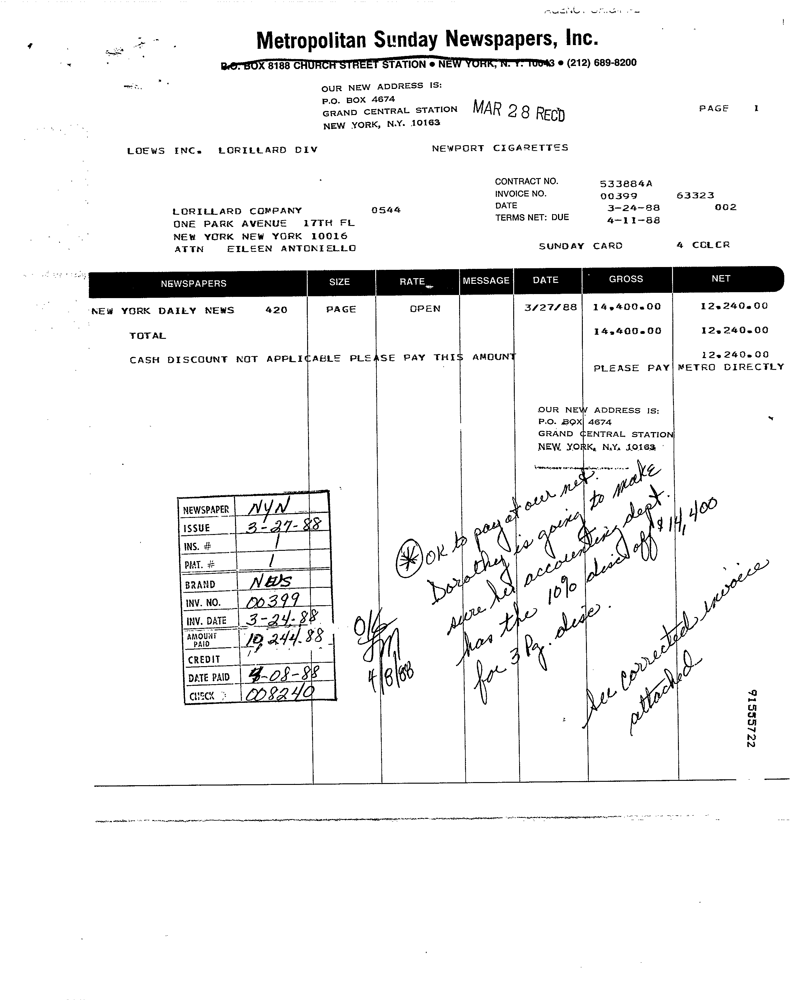 Metropolitan Sunday Newspapers, Inc.
P.O. BOX 8188 CHURCH STREET STATION • NEW YORK, N. Y. 10043 • (212) 689-8200
OUR NEW ADDRESS IS:
P.O. BOX 4674
GRAND CENTRAL STATION
NEW YORK, N.Y. 10163
MAR 28 REC'D
PAGE 1
LOEWS INC. LORILLARD DIV NEWPORT CIGARETTES
CONTRACT NO. 533884A
INVOICE NO. 00399 63323
DATE 3-24-88 002
TERMS NET: DUE 4-11-88
LORILLARD COMPANY 0544
ONE PARK AVENUE 17TH FL
NEW YORK NEW YORK 10016
ATTN EILEEN ANTONIELLO
SUNDAY CARD 4 COLCR
NEWSPAPERS SIZE RATE MESSAGE DATE GROSS NET
NEW YORK DAILY NEWS 420 PAGE OPEN 3/27/88 14,400.00 12,240.00
TOTAL 14,400.00 12,240.00
CASH DISCOUNT NOT APPLICABLE PLEASE PAY THIS AMOUNT 12,240.00
PLEASE PAY METRO DIRECTLY
OUR NEW ADDRESS IS:
P.O. BOX 4674
GRAND CENTRAL STATION
NEW YORK, N.Y. 10163
NEWSPAPER NYN
ISSUE 3-27-88
INS. # 1
PMT. # 1
BRAND NWS
INV. NO. 00399
INV. DATE 3-24-88
AMOUNT PAID 10,244.88
CREDIT
DATE PAID 4-08-88
CHECK 008240
OK
4/8/88
* OK to pay at our net.
Dorothy is going to make
sure her accounting dept.
has the 10% disc off $14,400
for 3 Pg. disc.
See corrected invoice
attached
91555722